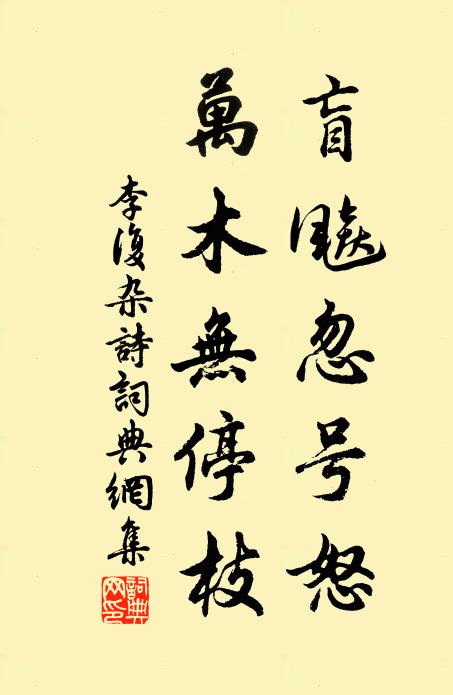 盲飈忽号怒
萬木無停枝
李復杂詩詞典網集
詞典網印